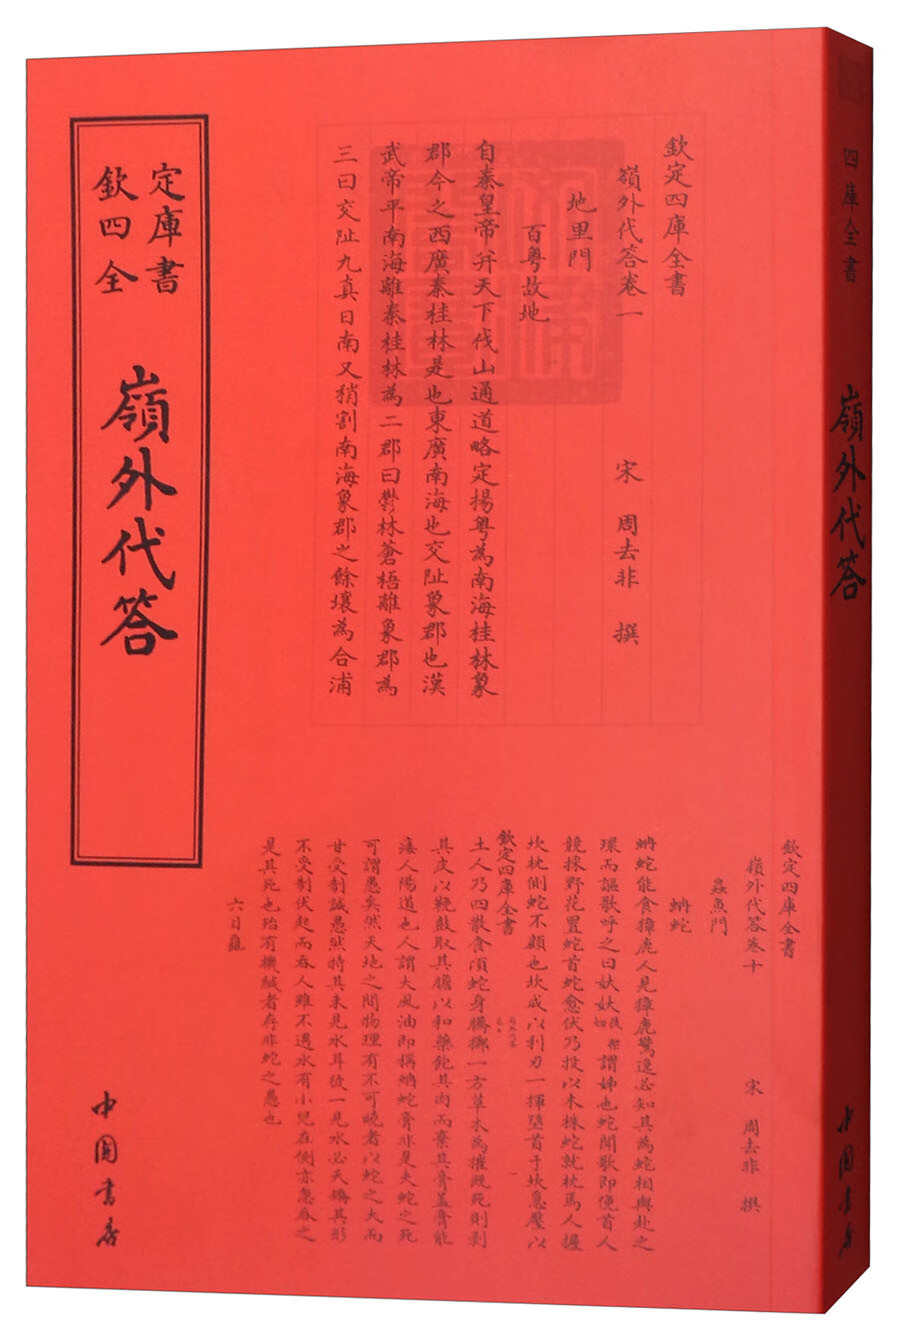 欽定
四庫
全書
嶺外代答
中國書店
欽定四庫全書
嶺外代答卷一
宋 周去非 撰
地里門
百粤故地
自秦皇帝并天下伐山通道略定揚粤為南海桂林象
郡今之西廣秦桂林是也東廣南海也交阯象郡也漢
武帝平南海離秦桂林為二郡曰鬱林蒼梧離象郡為
三曰交阯九真日南又稍割南海象郡之餘壤為合浦
欽定四庫全書
嶺外代答卷十
宋 周去非 撰
蟲魚門
蚺蛇
蚺蛇能食獐鹿人見獐鹿驚逸必知其為蛇相與赴之
環而謳歌呼之曰妖妖謂姊也蛇聞歌即俛首人
競採野花置蛇首蛇愈伏乃投以木株蛇就枕焉人掘
坎枕側蛇不顧也坎成以利刃一揮墮首于坎急壓以
欽定四庫全書
土人乃四散食頃蛇身騰擲一方草木為摧既死則剥
其皮以鞔鼓取其膽以和藥飽其肉而棄其膏蓋膏能
痿人陽道也人謂大風油即稱蚺蛇膏非是夫蛇之死
可謂愚矣然天地之間物理有不可曉者以蛇之大而
甘受制誠愚然特其未見水耳彼一見水必夭矯其形
不受制伏起而吞人雖不遇水有小兒在側亦急吞之
是其死也殆有機緘者存非蛇之愚也
六目龜
四庫全書
嶺外代答
中國書店